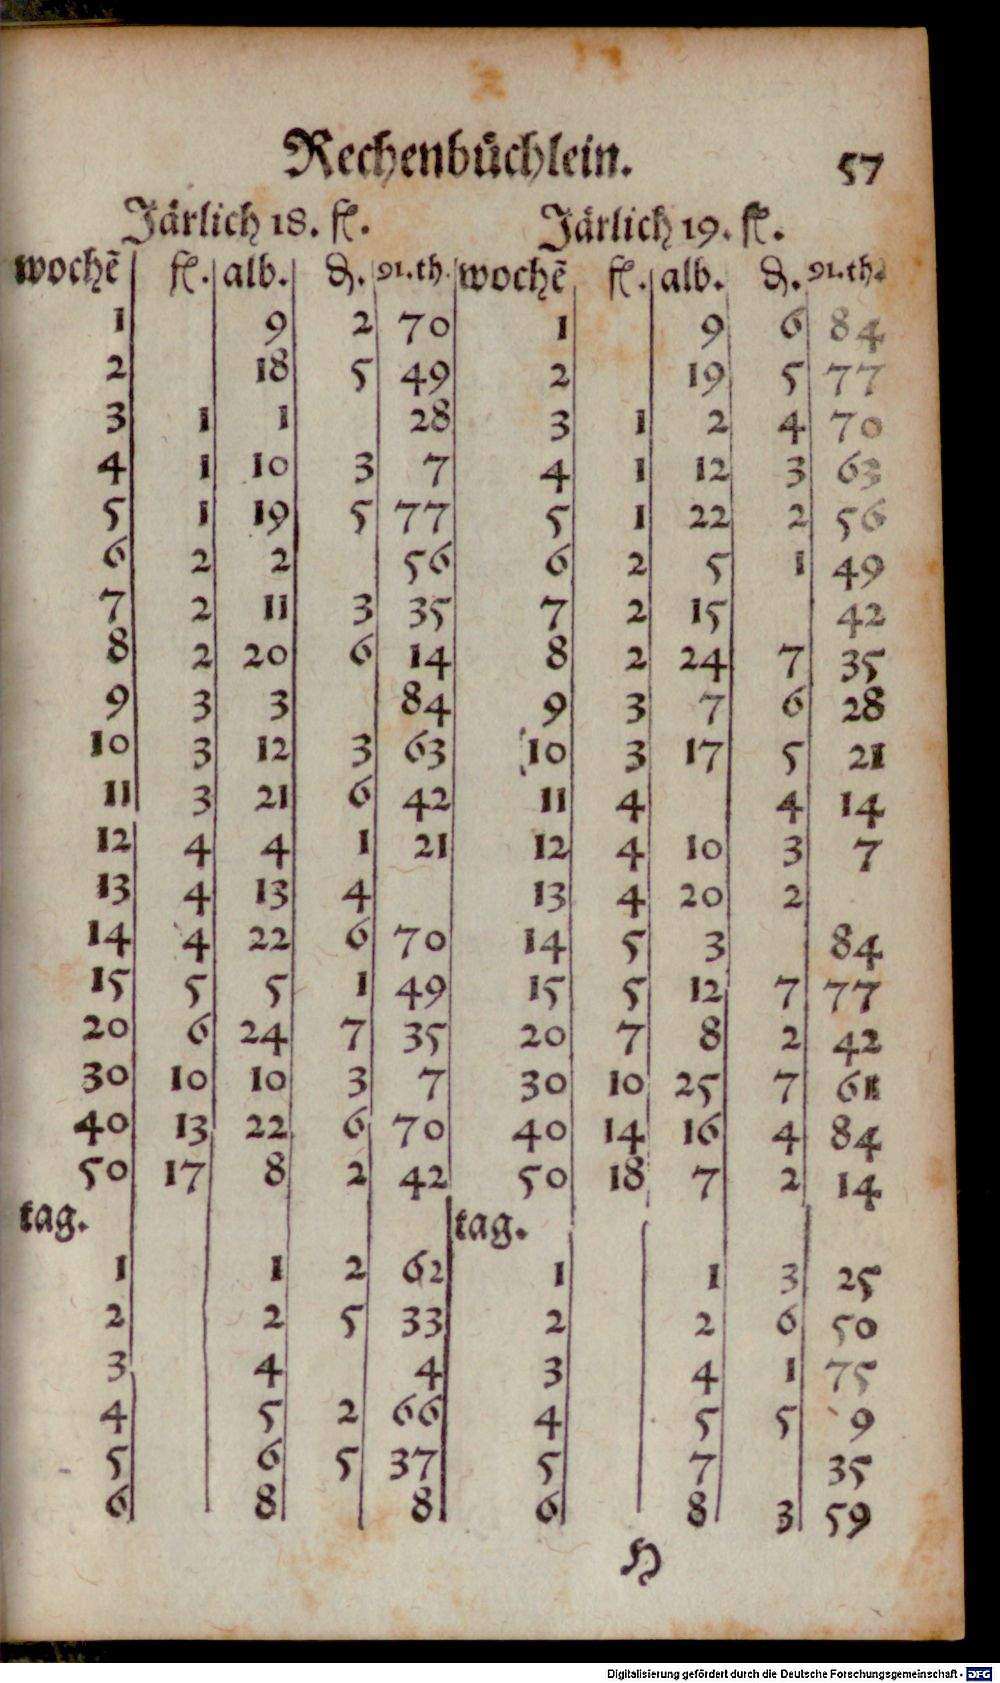 Rechenbüchlein. 57
Järlich 18. fl. Järlich 19. fl.
wochē fl. alb. ₰. 91.th. wochē fl. alb. ₰. 91.th.
1 9 2 70 1 9 6 84
2 18 5 49 2 19 5 77
3 1 1 28 3 1 2 4 70
4 1 10 3 7 4 1 12 3 63
5 1 19 5 77 5 1 22 2 56
6 2 2 56 6 2 5 1 49
7 2 11 3 35 7 2 15 42
8 2 20 6 14 8 2 24 7 35
9 3 3 84 9 3 7 6 28
10 3 12 3 63 10 3 17 5 21
11 3 21 6 42 11 4 4 14
12 4 4 1 21 12 4 10 3 7
13 4 13 4 13 4 20 2
14 4 22 6 70 14 5 3 84
15 5 5 1 49 15 5 12 7 77
20 6 24 7 35 20 7 8 2 42
30 10 10 3 7 30 10 25 7 61
40 13 22 6 70 40 14 16 4 84
50 17 8 2 42 50 18 7 2 14
tag. tag.
1 1 2 62 1 1 3 25
2 2 5 33 2 2 6 50
3 4 4 3 4 1 75
4 5 2 66 4 5 5 9
5 6 5 37 5 7 35
6 8 8 6 8 3 59
H
Digitalisierung gefördert durch die Deutsche Forschungsgemeinschaft - DFG